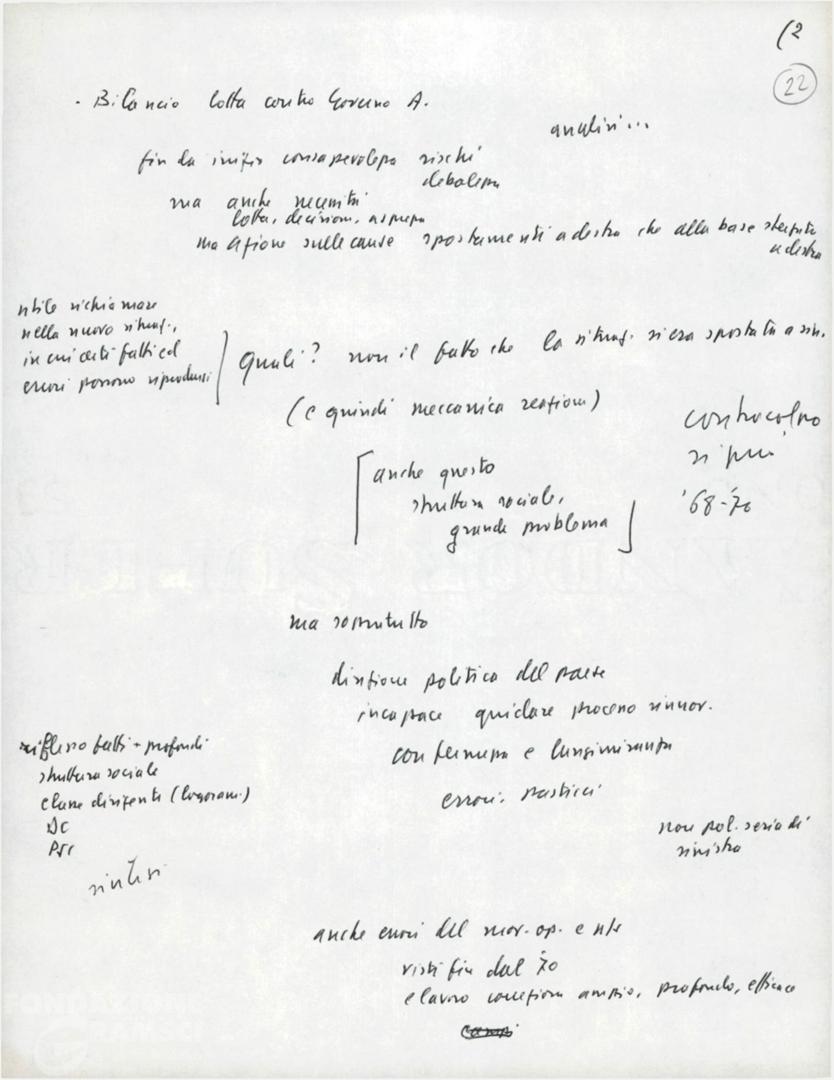 (2
22
- Bilancio lotta contro Governo A.
analisi...
fin da inizio consapevolezza rischi
debolezza
ma anche necessità
lotta, decisioni, asprezza
ma azione sulle cause spostamenti a destra che alla base
a destra
utile richiamare
nella nuova situaz.,
in cui certi fatti ed
errori possono riprodursi
Quali? non il fatto che la situaz. si era spostata a sin.
(e quindi meccanica reazione)
contraccolpo
si può
'68-'70
[anche questo
struttura sociale,
grande problema]
ma soprattutto
direzione politica del paese
incapace guidare processo rinnov.
con fermezza e lungimiranza
errori, pasticci
riflesso fatti + profondi
struttura sociale
classe dirigente (logoram.)
DC
PSI
sintesi
non pol. seria di
sinistra
anche errori del mov. op. e ns/
visti fin dal '70
e lavoro correzione ampio, profondo, efficace